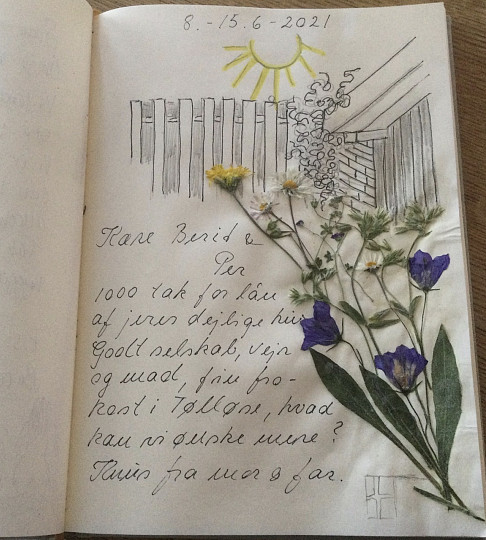 8.-15.6-2021
Kære Berit &
Per
1000 tak for lån
af jeres dejlige hus
Godt selskab, vejr
og mad, fin fro-
kost i Tølløse, hvad
kan vi ønske mere?
Knus fra mor & far.